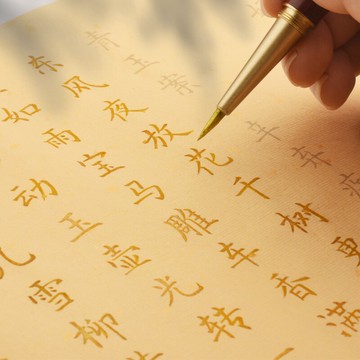 青玉案 辛弃
东风夜放花千树更
如雨宝马雕车香满
动玉壶光转
儿雪柳